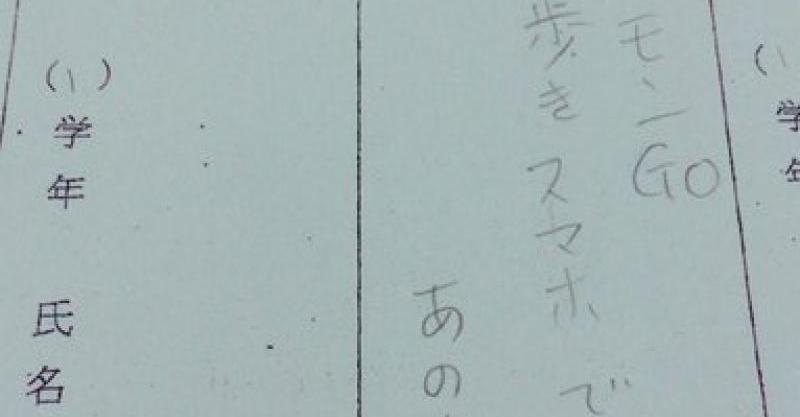 (1
学
モンGO
歩きスマホで
あの
(1)学年 氏名